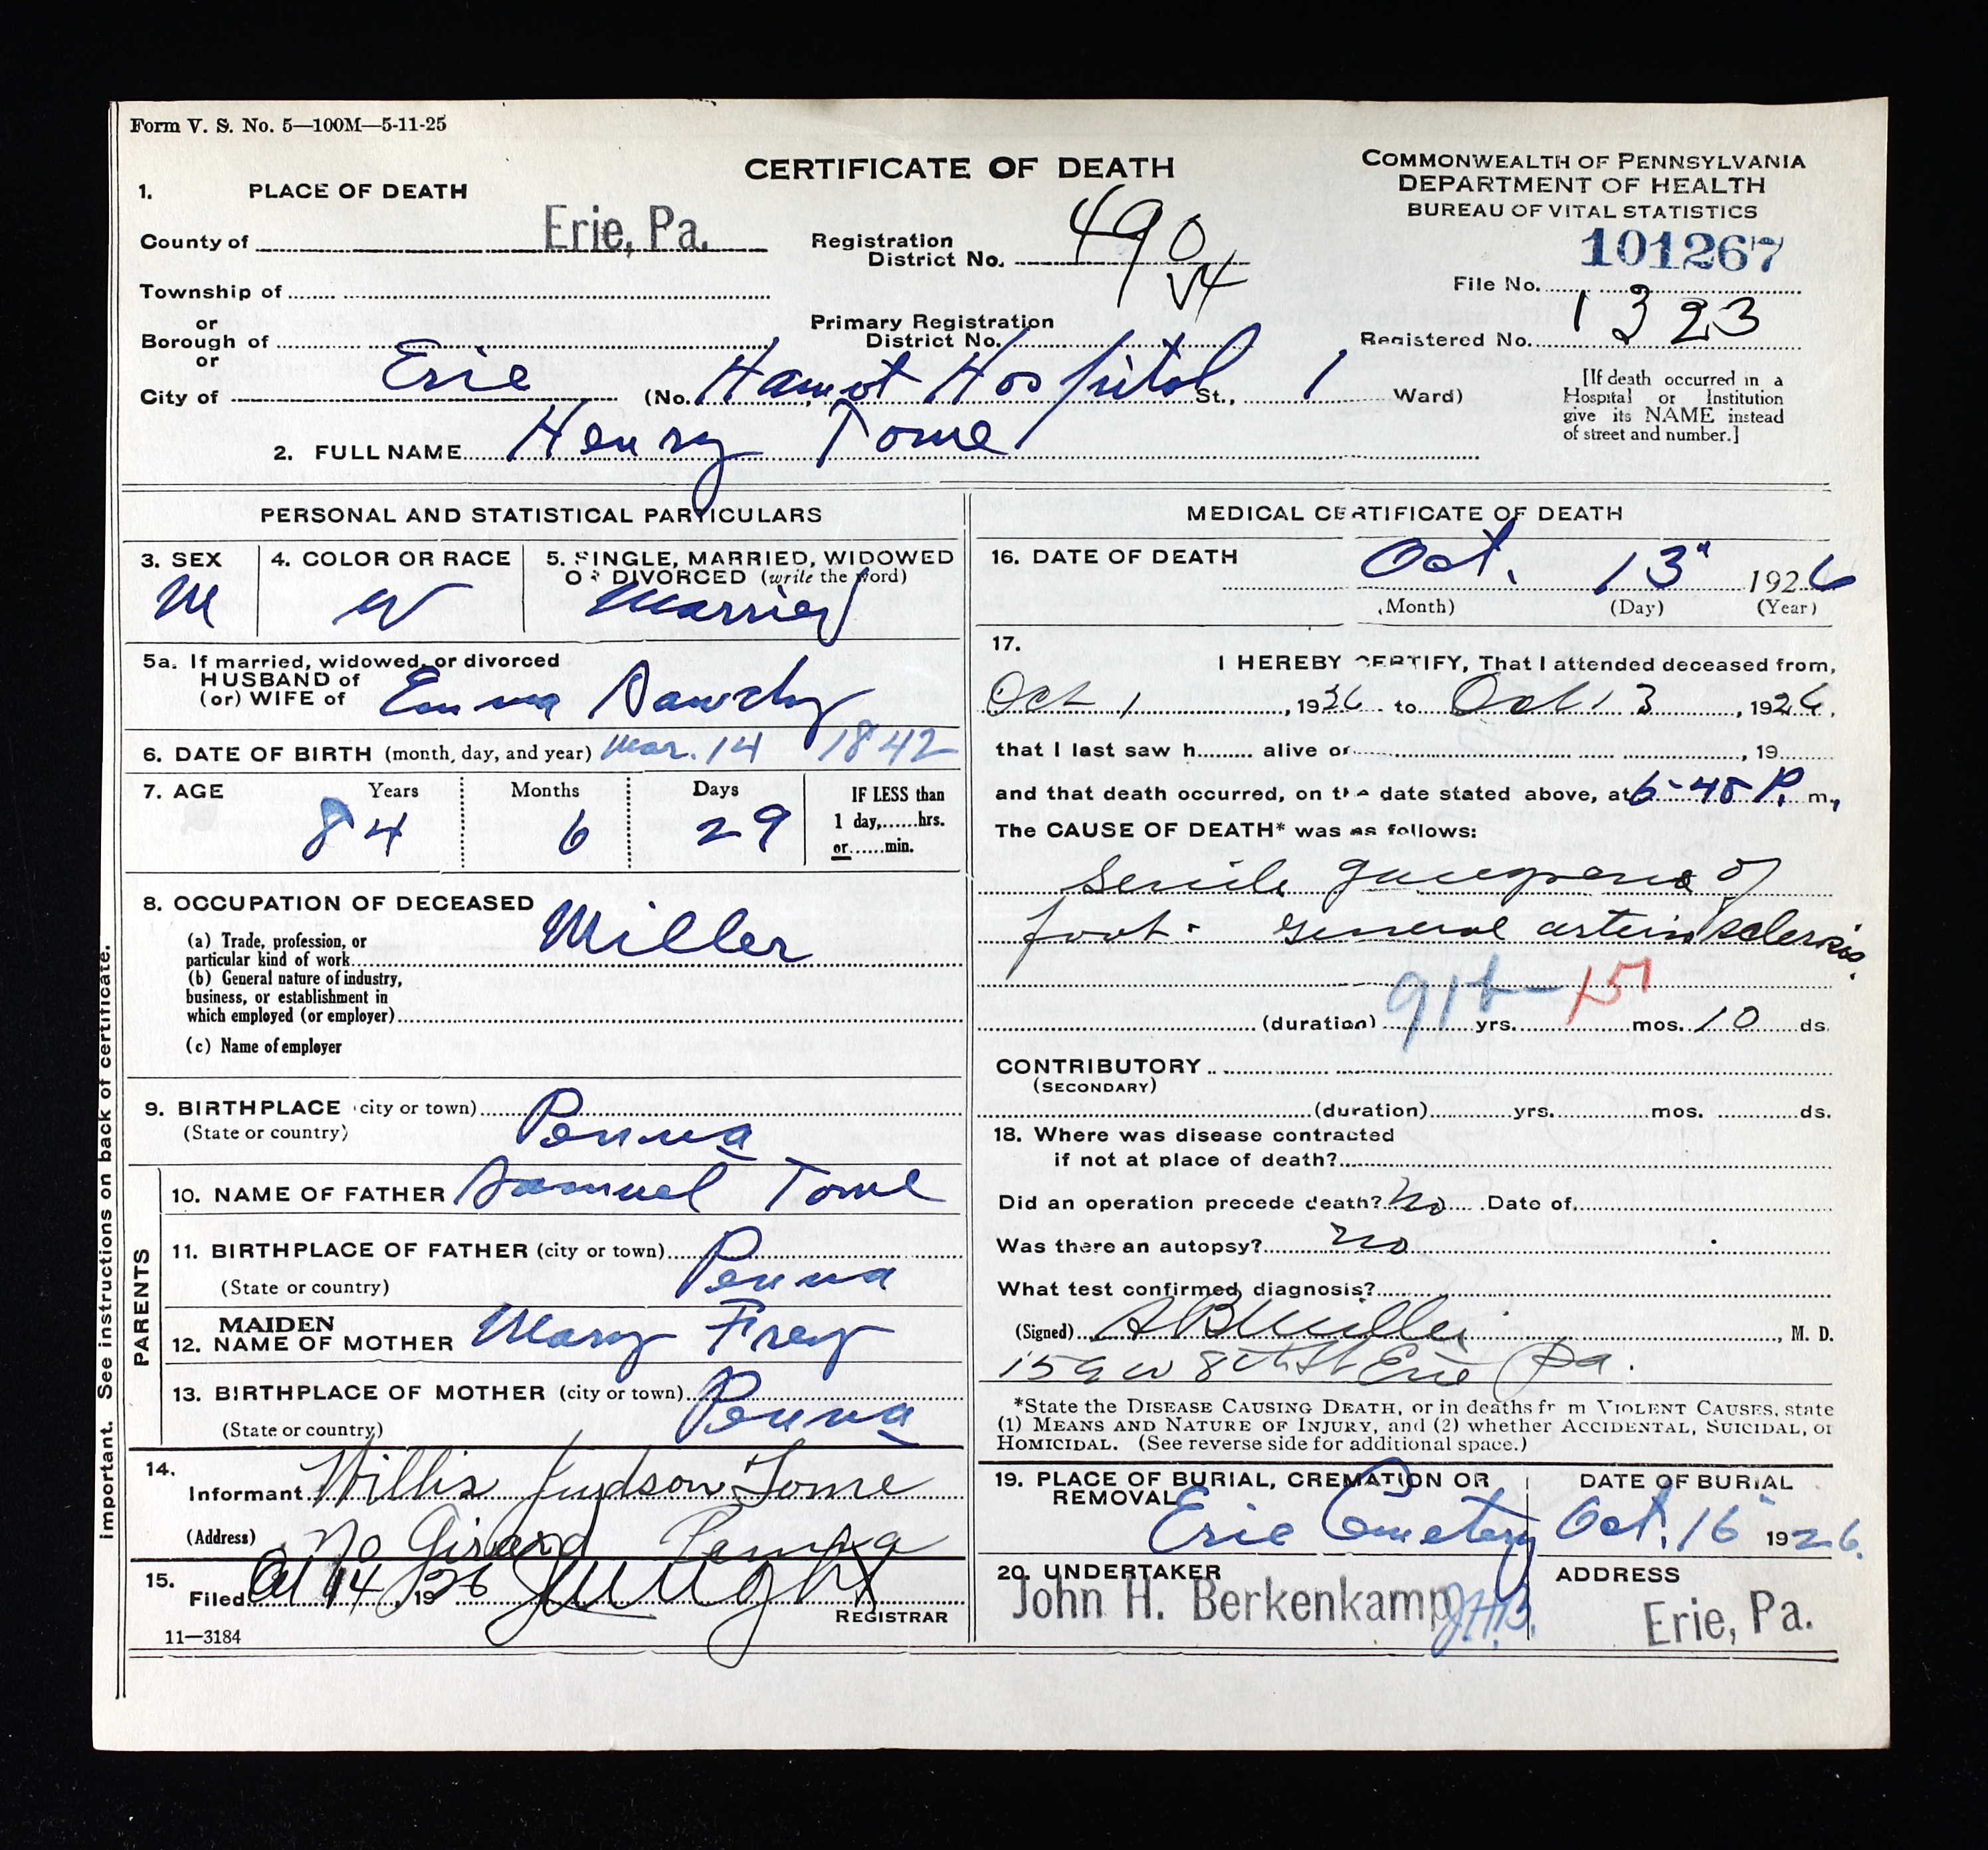 Form V. S. No. 5—100M—5-11-25
CERTIFICATE OF DEATH
COMMONWEALTH OF PENNSYLVANIA
DEPARTMENT OF HEALTH
BUREAU OF VITAL STATISTICS
1. PLACE OF DEATH
County of Erie, Pa.
Registration District No. 490
File No. 101267
Township of
or
Primary Registration District No.
Registered No. 1323
Borough of
or
City of Erie (No. Hamot Hospital St., 1 Ward)
[If death occurred in a Hospital or Institution give its NAME instead of street and number.]
2. FULL NAME Henry Tome
PERSONAL AND STATISTICAL PARTICULARS
3. SEX M
4. COLOR OR RACE W
5. SINGLE, MARRIED, WIDOWED OR DIVORCED (write the word) Married
5a. If married, widowed, or divorced
HUSBAND of
(or) WIFE of Emma
6. DATE OF BIRTH (month, day, and year) Mar. 14 1842
7. AGE Years 84 Months 6 Days 29 IF LESS than 1 day,......hrs. or......min.
8. OCCUPATION OF DECEASED
(a) Trade, profession, or particular kind of work Miller
(b) General nature of industry, business, or establishment in which employed (or employer)
(c) Name of employer
9. BIRTHPLACE (city or town) Penna
(State or country)
PARENTS
10. NAME OF FATHER Samuel Tome
11. BIRTHPLACE OF FATHER (city or town) Penna
(State or country)
12. MAIDEN NAME OF MOTHER Mary Frey
13. BIRTHPLACE OF MOTHER (city or town) Penna
(State or country)
14. Informant Willis Judson Tome
(Address) No Girard Penna
15. Filed 14, 1926
REGISTRAR
11—3184
important. See instructions on back of certificate.
MEDICAL CERTIFICATE OF DEATH
16. DATE OF DEATH Oct. 13" 1926
(Month) (Day) (Year)
17. I HEREBY CERTIFY, That I attended deceased from,
Oct 1, 1926 to Oct 13, 1926.
that I last saw h alive on , 19
and that death occurred, on the date stated above, at 6-45 P. m.,
The CAUSE OF DEATH* was as follows:
Senile gangrene of
foot. General arteriosclerosis.
91b— 151
(duration) yrs. mos. 10 ds.
CONTRIBUTORY
(SECONDARY)
(duration) yrs. mos. ds.
18. Where was disease contracted
if not at place of death?
Did an operation precede death? no Date of
Was there an autopsy? no
What test confirmed diagnosis?
(Signed) A B Miller, M. D.
W 8th St Erie Pa.
*State the DISEASE CAUSING DEATH, or in deaths from VIOLENT CAUSES, state
(1) MEANS AND NATURE OF INJURY, and (2) whether ACCIDENTAL, SUICIDAL, or
HOMICIDAL. (See reverse side for additional space.)
19. PLACE OF BURIAL, CREMATION OR REMOVAL Erie Cemetery
DATE OF BURIAL Oct. 16 1926.
20. UNDERTAKER John H. Berkenkamp J.H.B.
ADDRESS Erie, Pa.